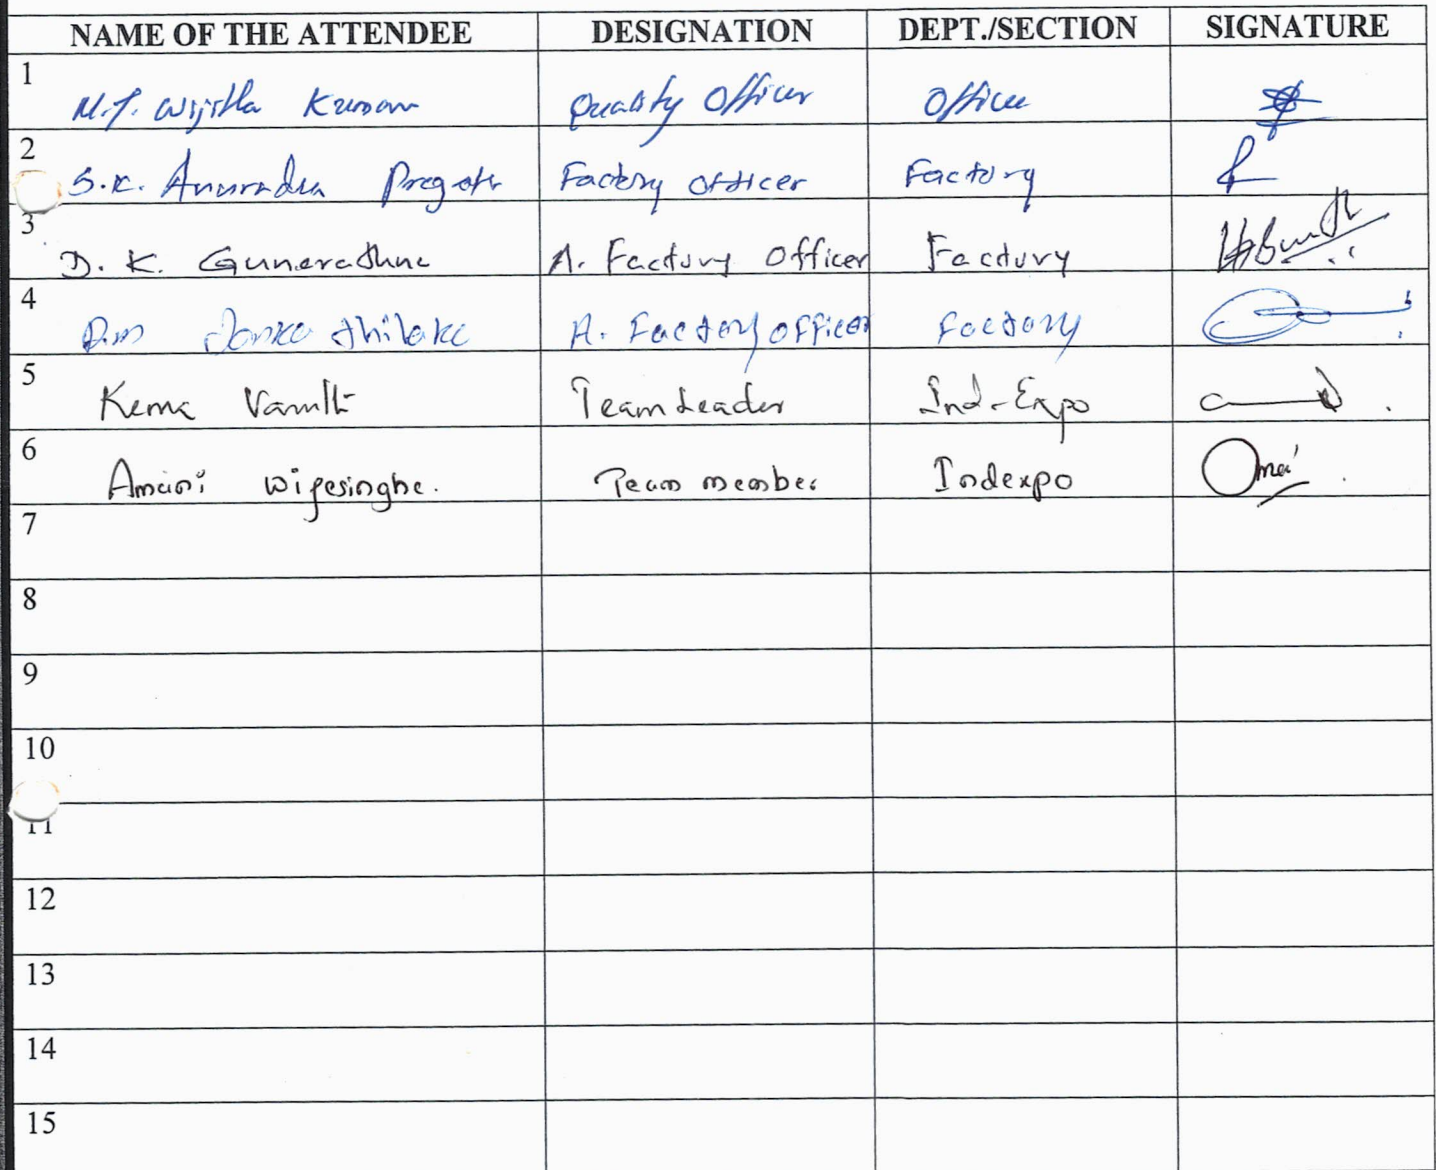 NAME OF THE ATTENDEE DESIGNATION DEPT./SECTION SIGNATURE
1 Quality Officer Office
2 S.K. Anuradha Factory officer Factory
3 D. K. Gunarathne A. Factory Officer Factory
4 D.M thilake A. Factory officer Factory
5 Kema Team Leader Ind-Expo
6 Amani wijesinghe. Team member Indexpo
7
8
9
10
11
12
13
14
15